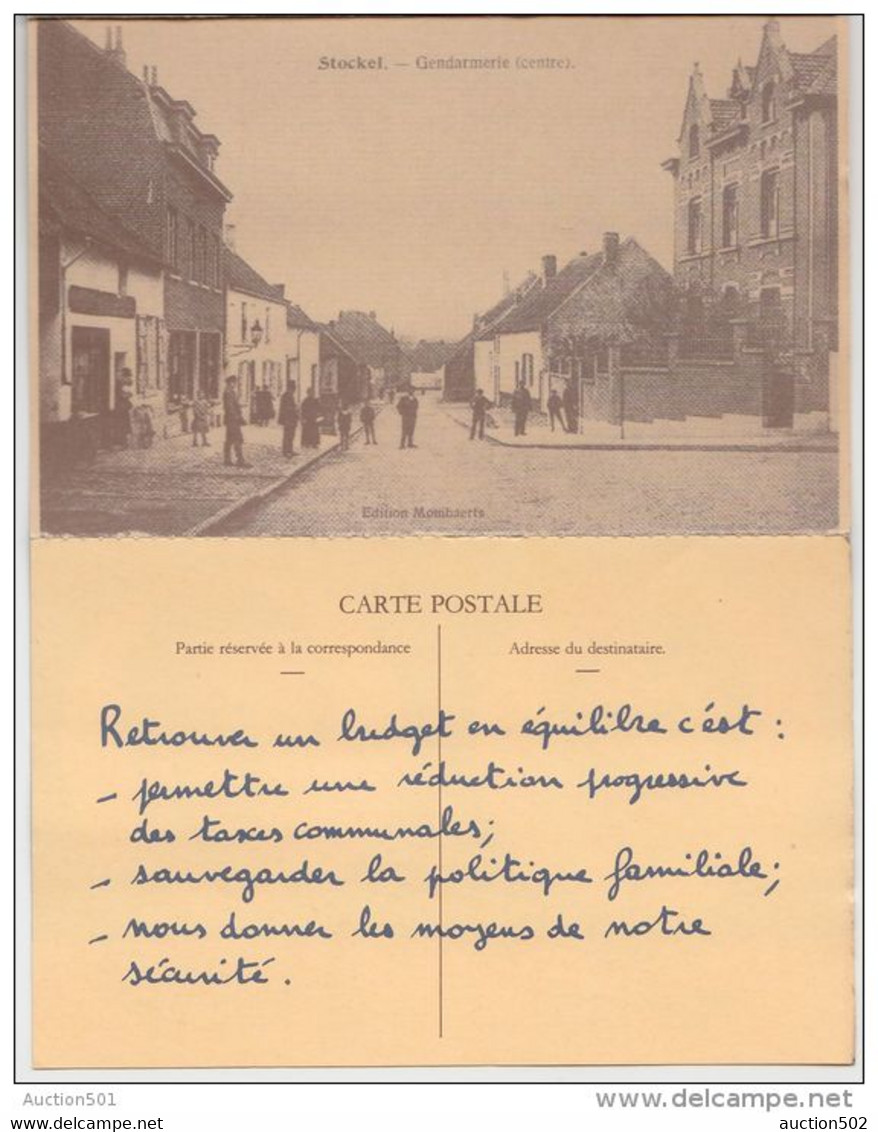 Stockel. — Gendarmerie (centre).
Edition Mombaerts
CARTE POSTALE
Partie réservée à la correspondance
Adresse du destinataire.
Retrouver un budget en équilibre c'ést :
- permettre une réduction progressive
des taxes communales;
- sauvegarder la politique familiale;
- nous donner les moyens de notre
sécurité.
Auction501
www.delcampe.net
auction502
auction502